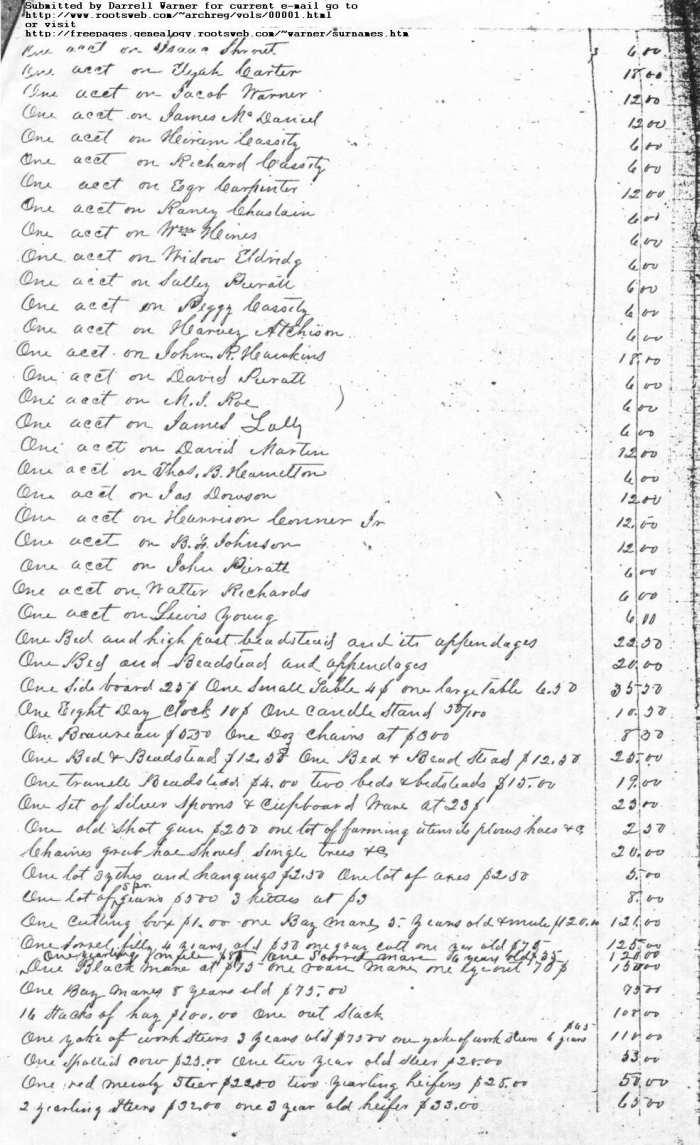 Submitted by Darrell Warner for current e-mail go to
http://www.rootsweb.com/~archreg/vols/00001.html
or visit
http://freepages.genealogy.rootsweb.com/~warner/surnames.htm
One acct on Isaac Shrout $ 6.00
One acct on Elijah Carter 18.00
One acct on Jacob Warner 12.00
One acct on James McDaniel 12.00
One acct on Hiram Cassity 6.00
One acct on Richard Cassity 6.00
One acct on Esqr Carpinter 12.00
One acct on Raney Chastain 6.00
One acct on Wm Hines 6.00
One acct on Widow Eldridg 6.00
One acct on Salley Puratt 6.00
One acct on Peggy Cassity 6.00
One acct on Harvey Atchison 6.00
One acct on John R. Hawkins 18.00
One acct on David Puratt 6.00
One acct on M. J. Roe 6.00
One acct on James Lally 6.00
One acct on David Martin 12.00
One acct on Thos. B. Hamelton 6.00
One acct on Jas Dowson 12.00
One acct on Harrison Conner Jr 12.00
One acct on B. F. Johnson 12.00
One acct on John Puratt 6.00
One acct on Walter Richards 6.00
One acct on Lewis Young 6.00
One Bed and high post beadstead and its appendages 22.50
One Bed and Beadstead and appendages 20.00
One Side board 25$ One Small Table 4$ one large Table 6.50 35.50
One Eight Day Clock 10$ One candle Stand 50/100 10.50
One Beaureau $5.50 One Doz chairs at $3.00 8.50
One Bed & Beadstead $12.50 One Bed & Bead Stead $12.50 25.00
One trunell Beadstead $4.00 two beds & bedsteads $15.00 19.00
One Set of Silver Spoons & Cupboard Ware at 23$ 23.00
One old Shot gun $2.50 one lot of farming utensils plows hoes &c 2.50
Chaines grub hoe Shovel Single trees &c 20.00
One lot Sythes and hangings $2.50 One lot of axes $2.50 5.00
One lot of $5.00 3 kittles at $3 8.00
One Cutting box $1.00 one Bay Mare 5 years old & mule $120.00 121.00
One Sorrel filly 4 years old $50 one gray colt one year old $75 125.00
One yearling mule $85 One Sorrel mare 6 years old $35 120.00
One Black mare at $75 one roan mare one eye out 75$ 150.00
One Bay Mare 8 years old $75.00 75.00
16 Stacks of hay $100.00 One out Stack 100.00
One yoke of work Steers 3 years old $75.00 one yoke of work Steers 6 years $45 110.00
One Spotted cow $23.00 One two year old Steer $20.00 53.00
One red Steer $22.00 two yearling heifers $28.00 50.00
2 yearling Steers $32.00 one 3 year old heifer $33.00 65.00